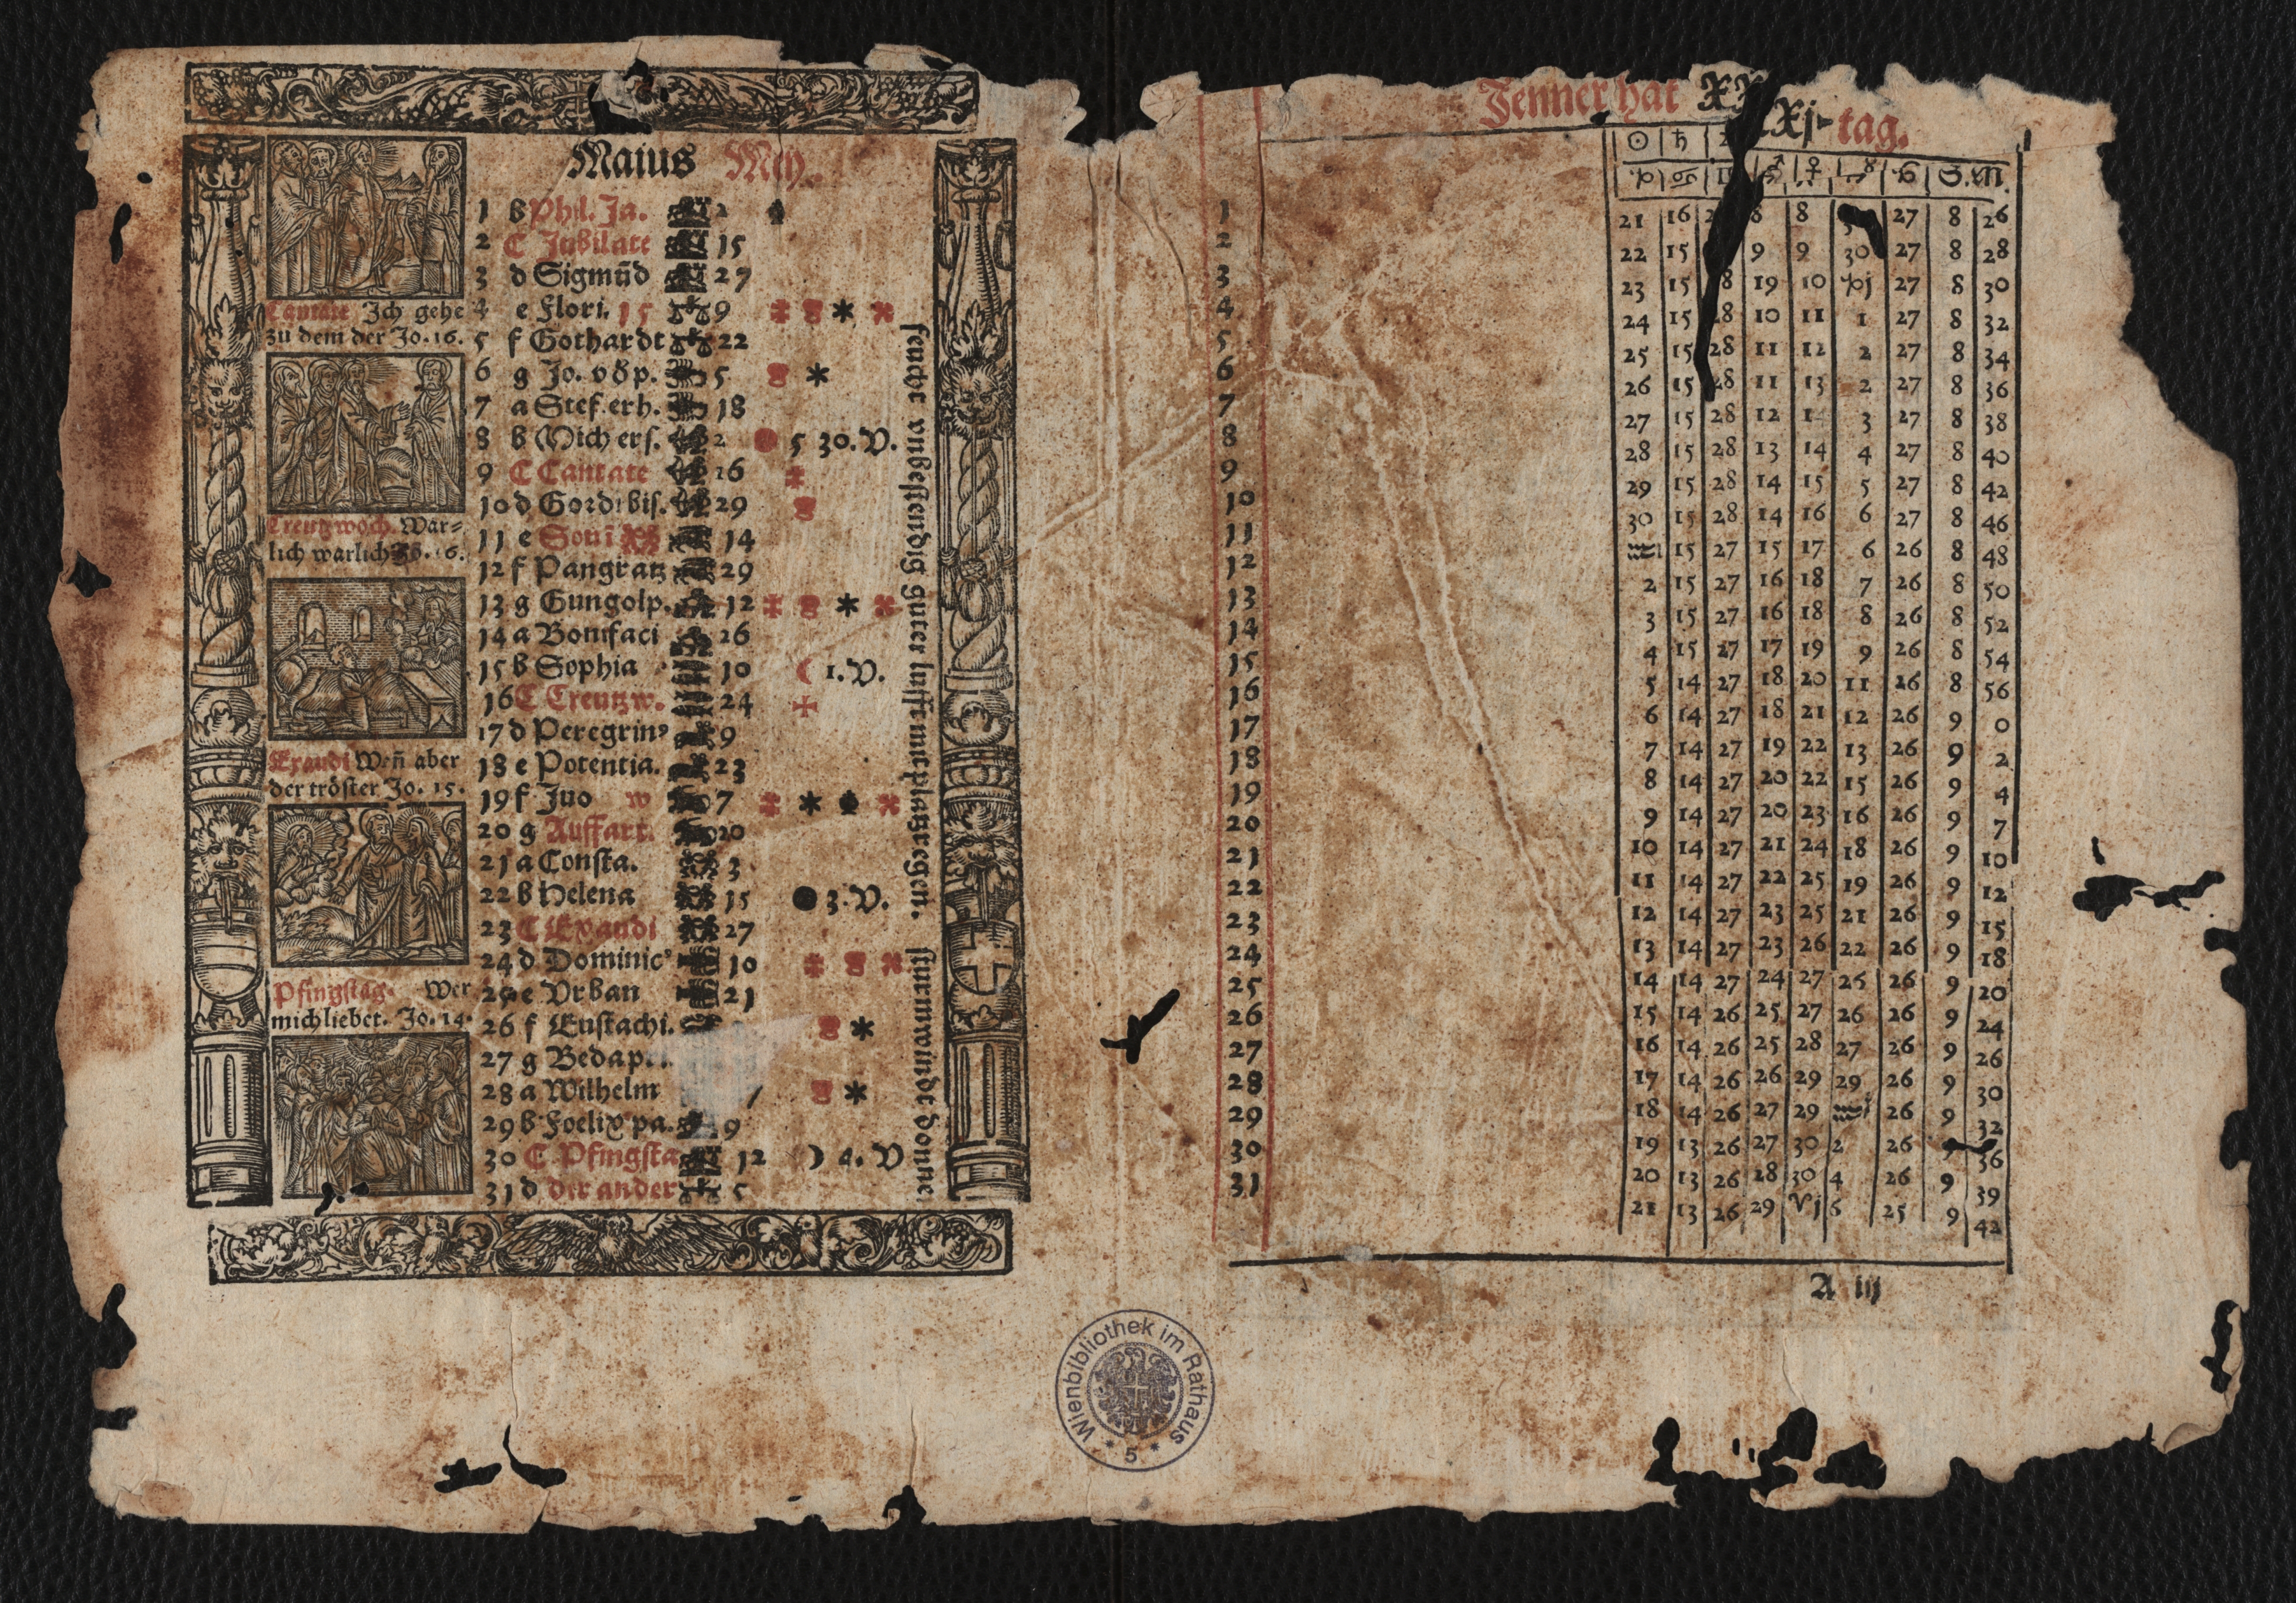 Maius Mey.
1 b Phil. Ja. 2
2 C Jubilate 15
3 d Sigmūd 27
4 e Flori. 15 9
5 f Gothardt 22
6 g Jo. vō p. 5
7 a Stef. erh. 18
8 b Mich ers. 2 5 30. V.
9 C Cantate 16
10 d Gord: bis. 29
11 e 14
12 f Pangratz 29
13 g Gungolp. 12
14 a Bonifaci 26
15 b Sophia 10 1. V.
16 C Creutzw. 24
17 d Peregrin⁹ 9
18 e Potentia. 23
19 f Juo w 7
20 g Auffart. 20
21 a Consta. 3
22 b Helena 15 3. V.
23 C Exaudi 27
24 d Dominic⁹ 10
25 e Vrban 21
26 f Eustachi.
27 g Beda p.
28 a Wilhelm
29 b Foelix pa. 9
30 C Pfingsta 12 4. V
31 d der ander 5
Cantate Ich gehe
zu dem der Jo. 16.
Creutzwoch. War-
lich warlich Jo. 16.
Exaudi Weñ aber
der tröster Jo. 15.
Pfingstag. Wer
mich liebet. Jo. 14.
feucht vnbestendig guter lufft mit platzregen. sturmwindt donne
Jenner hat XXXj tag.
☉ ♄ ♂ ♀ S. M.
1 21 16 8 8 27 8 26
2 22 15 9 9 30 27 8 28
3 23 15 28 19 10 ♑j 27 8 30
4 24 15 28 10 11 1 27 8 32
5 25 15 28 11 12 2 27 8 34
6 26 15 28 11 13 2 27 8 36
7 27 15 28 12 3 27 8 38
8 28 15 28 13 14 4 27 8 40
9 29 15 28 14 15 5 27 8 42
10 30 15 28 14 16 6 27 8 46
11 ♒1 15 27 15 17 6 26 8 48
12 2 15 27 16 18 7 26 8 50
13 3 15 27 16 18 8 26 8 52
14 4 15 27 17 19 9 26 8 54
15 5 14 27 18 20 11 26 8 56
16 6 14 27 18 21 12 26 9 0
17 7 14 27 19 22 13 26 9 2
18 8 14 27 20 22 15 26 9 4
19 9 14 27 20 23 16 26 9 7
20 10 14 27 21 24 18 26 9 10
21 11 14 27 22 25 19 26 9 12
22 12 14 27 23 25 21 26 9 15
23 13 14 27 23 26 22 26 9 18
24 14 14 27 24 27 25 26 9 20
25 15 14 26 25 27 26 26 9 24
26 16 14 26 25 28 27 26 9 26
27 17 14 26 26 29 29 26 9 30
28 18 14 26 27 29 ♒j 26 9 32
29 19 13 26 27 30 2 26 36
30 20 13 26 28 30 4 26 9 39
31 21 13 26 29 ♈j 6 25 9 42
A iij
Wienbibliothek im Rathaus
* 5 *